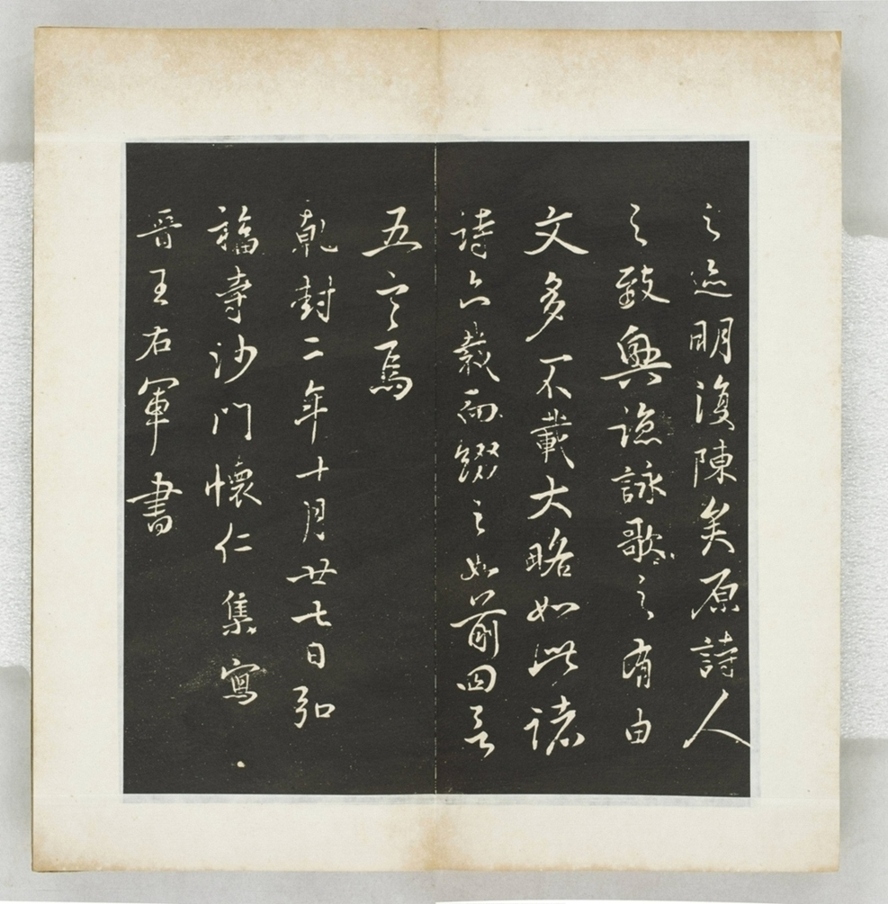 之迹明復陳矣原詩人
之致興諒詠歌之有由
文多不載大略如此諸
詩亦裁而綴之如前四言
五言焉
乾封二年十月廿七日弘
福壽沙門懷仁集寫
晉王右軍書